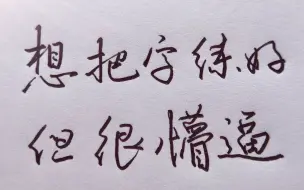 想把字练好
但很懵逼